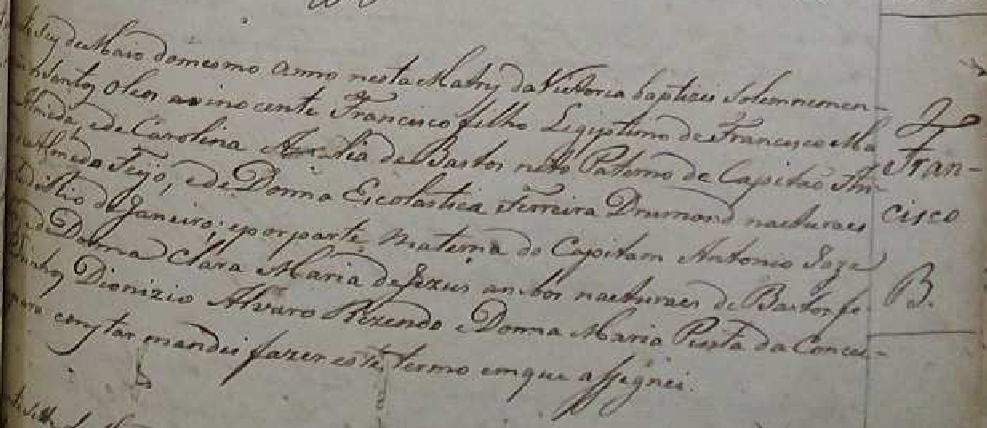 de Maio do mesmo anno nesta Matriz da Victoria baptizei Solemnemen-
Santos Oleos ao inocente Francisco filho Legiptimo de Francisco
e de Carolina Amalia de Bastos neto Paterno de Capitão
Feijó, e de Donna Escolastica Ferreira Drumond nacturaes
Rio de Janeiro; e por parte Materna do Capitam Antonio Joze
Donna Clara Maria de Jezus ambos nacturaes de
Dionizio Alvaro Rezendo e Donna Maria Penta da Concei-
para constar mandei fazer este termo em que assignei.
Fran-
cisco
B.